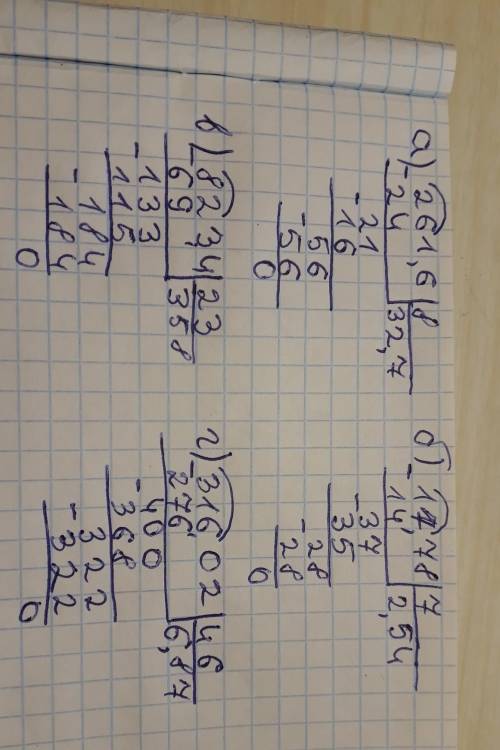 а) 261,6 | 8
-24 | 32,7
21
-16
56
-56
0
б) 17,78 | 7
-14 | 2,54
37
-35
28
-28
0
в) 823,4 | 23
-69 | 358
133
-115
184
-184
0
г) 316,02 | 46
-276 | 6,87
400
-368
322
-322
0